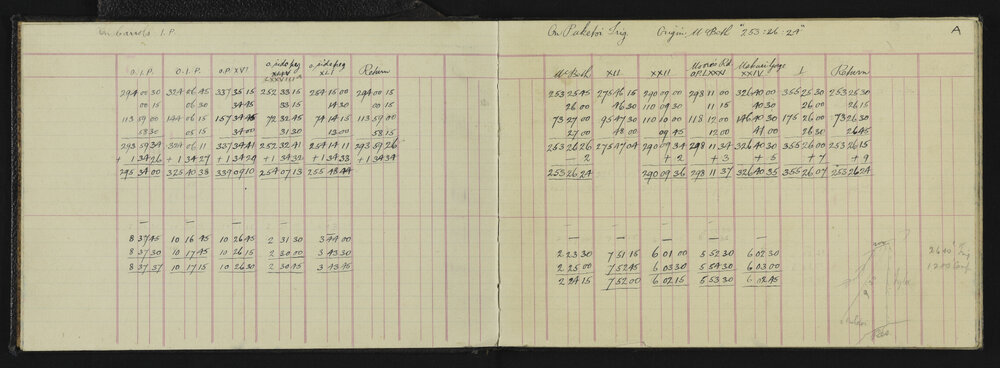 On Barrels I.P.
O.I.P. O.I.P. O.P. XVI O. side peg XLIV LXXVIII A O. side peg XLI Return
294 00 30 324 06 45 337 35 15 252 33 15 254 15 00 294 00 15
00 15 06 30 34 45 33 15 14 30 00 15
113 59 00 144 06 15 157 34 45 72 32 45 74 14 15 113 59 00
58 30 05 15 34 00 31 30 13 00 58 15
293 59 34 324 06 11 337 34 41 252 32 41 254 14 11 293 59 26
+ 1 34 26 + 1 34 27 + 1 34 29 + 1 34 32 + 1 34 33 + 1 34 34
295 34 00 325 40 38 339 09 10 254 07 13 255 48 44
8 37 45 10 16 45 10 26 45 2 31 30 3 44 00
8 37 30 10 17 45 10 26 15 2 30 00 3 43 30
8 37 37 10 17 15 10 26 30 2 30 45 3 43 45
On Puketoi Trig Origin McBeth "253:26:24" A
McBeth XII XXII Moores Rd. O.P. LXXXI Makuri Gorge XXIV I Return
253 25 45 275 46 15 290 09 00 298 11 00 326 40 00 355 25 30 253 25 30
26 00 46 30 110 09 30 11 15 40 30 26 00 26 15
73 27 00 95 47 30 110 10 00 118 12 00 146 40 30 175 26 00 73 26 30
27 00 48 00 09 45 12 00 41 00 26 30 26 45
253 26 26 275 47 04 290 09 34 298 11 34 326 40 30 355 26 00 253 26 15
- 2 + 2 + 3 + 5 + 7 + 9
253 26 24 290 09 36 298 11 37 326 40 35 355 26 07 253 26 24
2 23 30 7 51 15 6 01 00 5 52 30 6 02 30
2 25 00 7 52 45 6 03 30 5 54 30 6 03 00
2 24 15 7 52 00 6 02 15 5 53 30 6 02 45